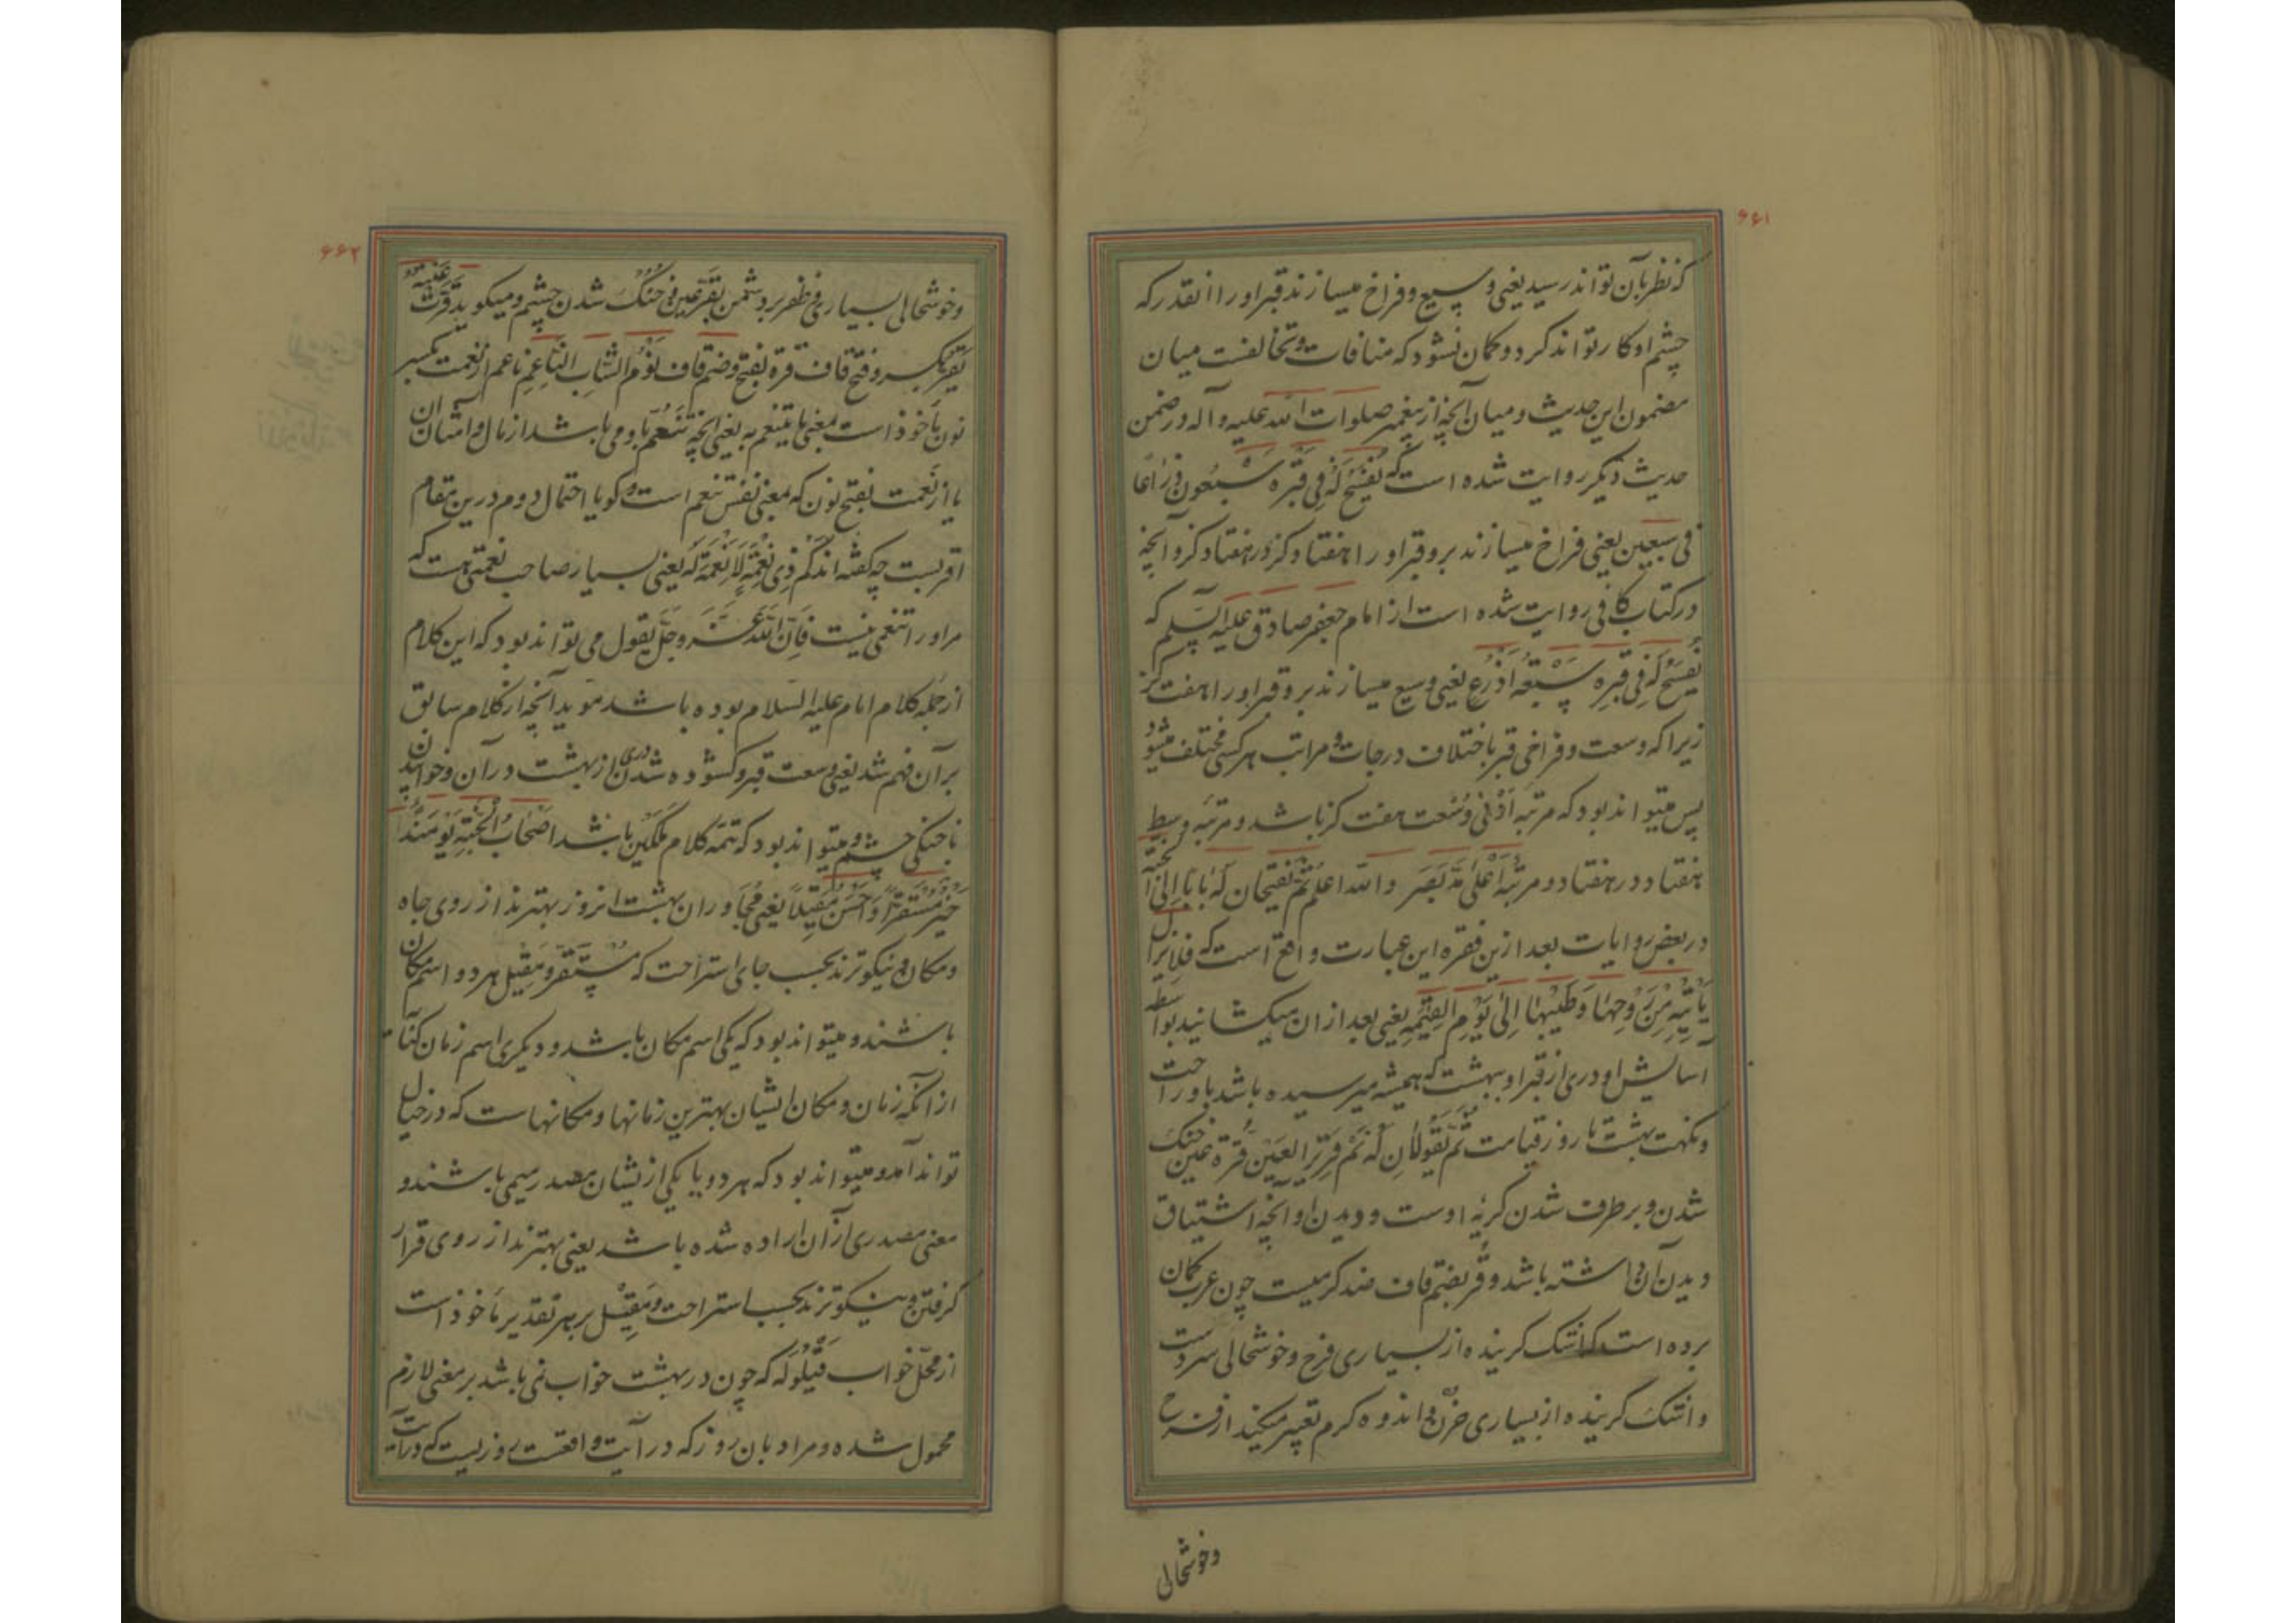 ۶۶۱
که نظر بآن تواند رسید یعنی وسیع و فراخ میسازند قبر او را انقدر که
چشم او کار تواند کرد و کمان نشود که منافات و تخالفت میان
مضمون این حدیث و میان آنچه از پیغمبر صلوات الله علیه و آله در ضمن
حدیث دیکر روایت شده است که یُفْسَحُ لَهُ فِی قَبْرِهِ سَبْعُونَ ذِرَاعًا
فی سبعین یعنی فراخ میسازند برو قبر او را هفتاد کز در هفتاد کز و آنچه
در کتاب کافی روایت شده است از امام جعفر صادق علیه السلام که
یُفْسَحُ لَهُ فِی قَبْرِهِ سَبْعَةُ اَذْرُعٍ یعنی وسیع میسازند برو قبر او را هفت کز
زیرا که وسعت و فراخی قبر باختلاف درجات و مراتب هر کسی مختلف میشود
پس میتواند بود که مرتبه اَدْنی وُسْعت هفت کز باشد و مرتبه وسط
هفتاد در هفتاد و مرتبه اَعْلی مَدّ بَصَر والله اعلم ثُمَّ یَفْتَحَانِ لَهُ بَابًا اِلَی الجَنَّةِ
در بعض روایات بعد ازین فقره این عبارت واقع است که فلایزال
یَأتِیهِ مِنْ رَوْحِهَا وَطِیْبِهَا اِلَی یَوْمِ القِیٰمَةِ یعنی بعد از ان میکشانید بواسطه
آسایش او دری از قبر او ببهشت که همیشه میرسیده باشد باو راحت
و نکهت بهشت تا روز قیامت ثُمَّ یَقُولَانِ لَهُ نَمْ قَرِیْرَ العَیْنِ قُرَّة عین خنک
شدن و بر طرف شدن کریه اوست و دیدن او آنچه اشتیاق
دیدن آن داشته باشد و قُر بضم قاف ضد کرمیست چون عرب کمان
برده است که اشک کرینده از بسیاری فرح و خوشحالی سردست
و اشک کرینده از بسیاری حزن و اندوه کرم تعبیر میکنند از فرح
وخوشحالی
۶۶۲
وخوشحالی بسیاری و ظفر بر دشمن بقرة عین و خنک شدن چشم و میکوید قرت عینه
تَقَرُّ بکسر و فتح قاف قره بفتح و ضم قاف نَوْمَ الشَّابِ النَّاعِمِ ناعم از نعمت بکسر
نون ماخوذ است بمعنی ما یتنعم به یعنی آنچه تَنَعُّم باو می باشد از مال و امثال ان
یا از نَعْمت بفتح نون که بمعنی نفس تنعم است و کویا احتمال دوم درین مقام
اقربست چه کفته اند کَمْ ذِی نِعْمَةٍ لَا نَعْمَةَ لَه یعنی بسیار صاحب نعمتی هست که
مر او را تنعمی نیست فَاِنَّ اللهَ عَزَّ وَجَلَّ یَقُول می تواند بود که این کلام
از جمله کلام امام علیه السلام بوده باشد مؤید آنچه از کلام سابق
برآن فهم شد یعنی وسعت قبر و کشوده شدن دری از بهشت در آن و خوابیدن
با خنکی چشم و میتواند بود که تتمه کلام ملکین باشد اَصْحَابُ الْجَنَّةِ یَوْمَئِذٍ
خَیْرٌ مُسْتَقَرًّا وَاَحْسَنُ مَقِیْلًا یعنی مجاوران بهشت انروز بهترند از روی جاه
و مکان و نیکوترند بحسب جای استراحت که مستقر و مقیل هر دو اسم مکان
باشند و میتواند بود که یکی اسم مکان باشد و دیکری اسم زمان کنایت
از آنکه زمان و مکان ایشان بهترین زمانها و مکانهاست که در خیال
تواند آمد و میتواند بود که هر دو یا یکی از یشان مصدر میمی باشند و
معنی مصدری از آن اراده شده باشد یعنی بهترند از روی قرار
کرفتن و نیکوترند بحسب استراحت و مَقِیْل بر هر تقدیر ماخوذ است
از محل خواب قیلوله که چون در بهشت خواب نمی باشد بر معنی لازم
محمول شده و مراد بان روز که در آیت واقعست روزیست که در آیت